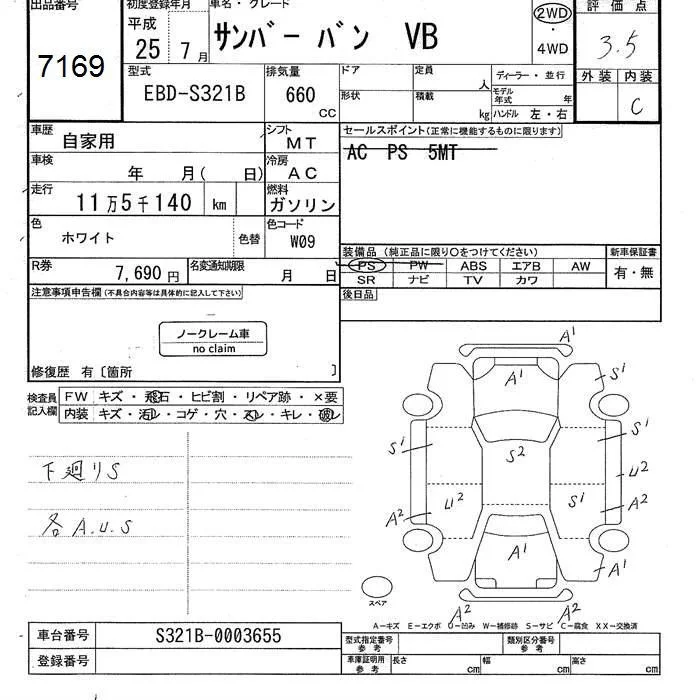 出品番号
7169
初度登録年月
平成
25 7月
車名・グレード
サンバー バン VB
2WD
・
4WD
評価点
3.5
型式
EBD-S321B
排気量
660
CC
ドア
形状
定員
人
積載
kg
ディーラー・並行
モデル年式 年
ハンドル 左・右
外装 内装
C
車歴
自家用
シフト
MT
車検
年 月( 日)
冷房
AC
走行
11万5千140 km
燃料
ガソリン
色
ホワイト
色替
色コード
W09
R券
7,690円
名変通知期限
月 日
セールスポイント(正常に機能するものに限ります)
AC PS 5MT
装備品(純正品に限り○をつけてください)
新車保証書
PS PW ABS エアB AW
SR ナビ TV カワ
有・無
後日品
注意事項申告欄(不具合内容等は具体的に記入して下さい)
ノークレーム車
no claim
修復歴 有〔箇所 〕
検査員記入欄
FW キズ・飛石・ヒビ割・リペア跡・×要
内装 キズ・汚レ・コゲ・穴・スレ・キレ・破レ
下廻りS
各A.U.S
A1
A1
S1
S1
S1
S2
U2
U2
S1
A2
A2
A1
A1
A2
A2
スペア
A-キズ E-エクボ U-凹み W-補修跡 S-サビ C-腐食 XX-交換済
車台番号
S321B-0003655
登録番号
型式指定番号
参考
類別区分番号
参考
車庫証明用
参考
長さ cm 幅 cm 高さ cm